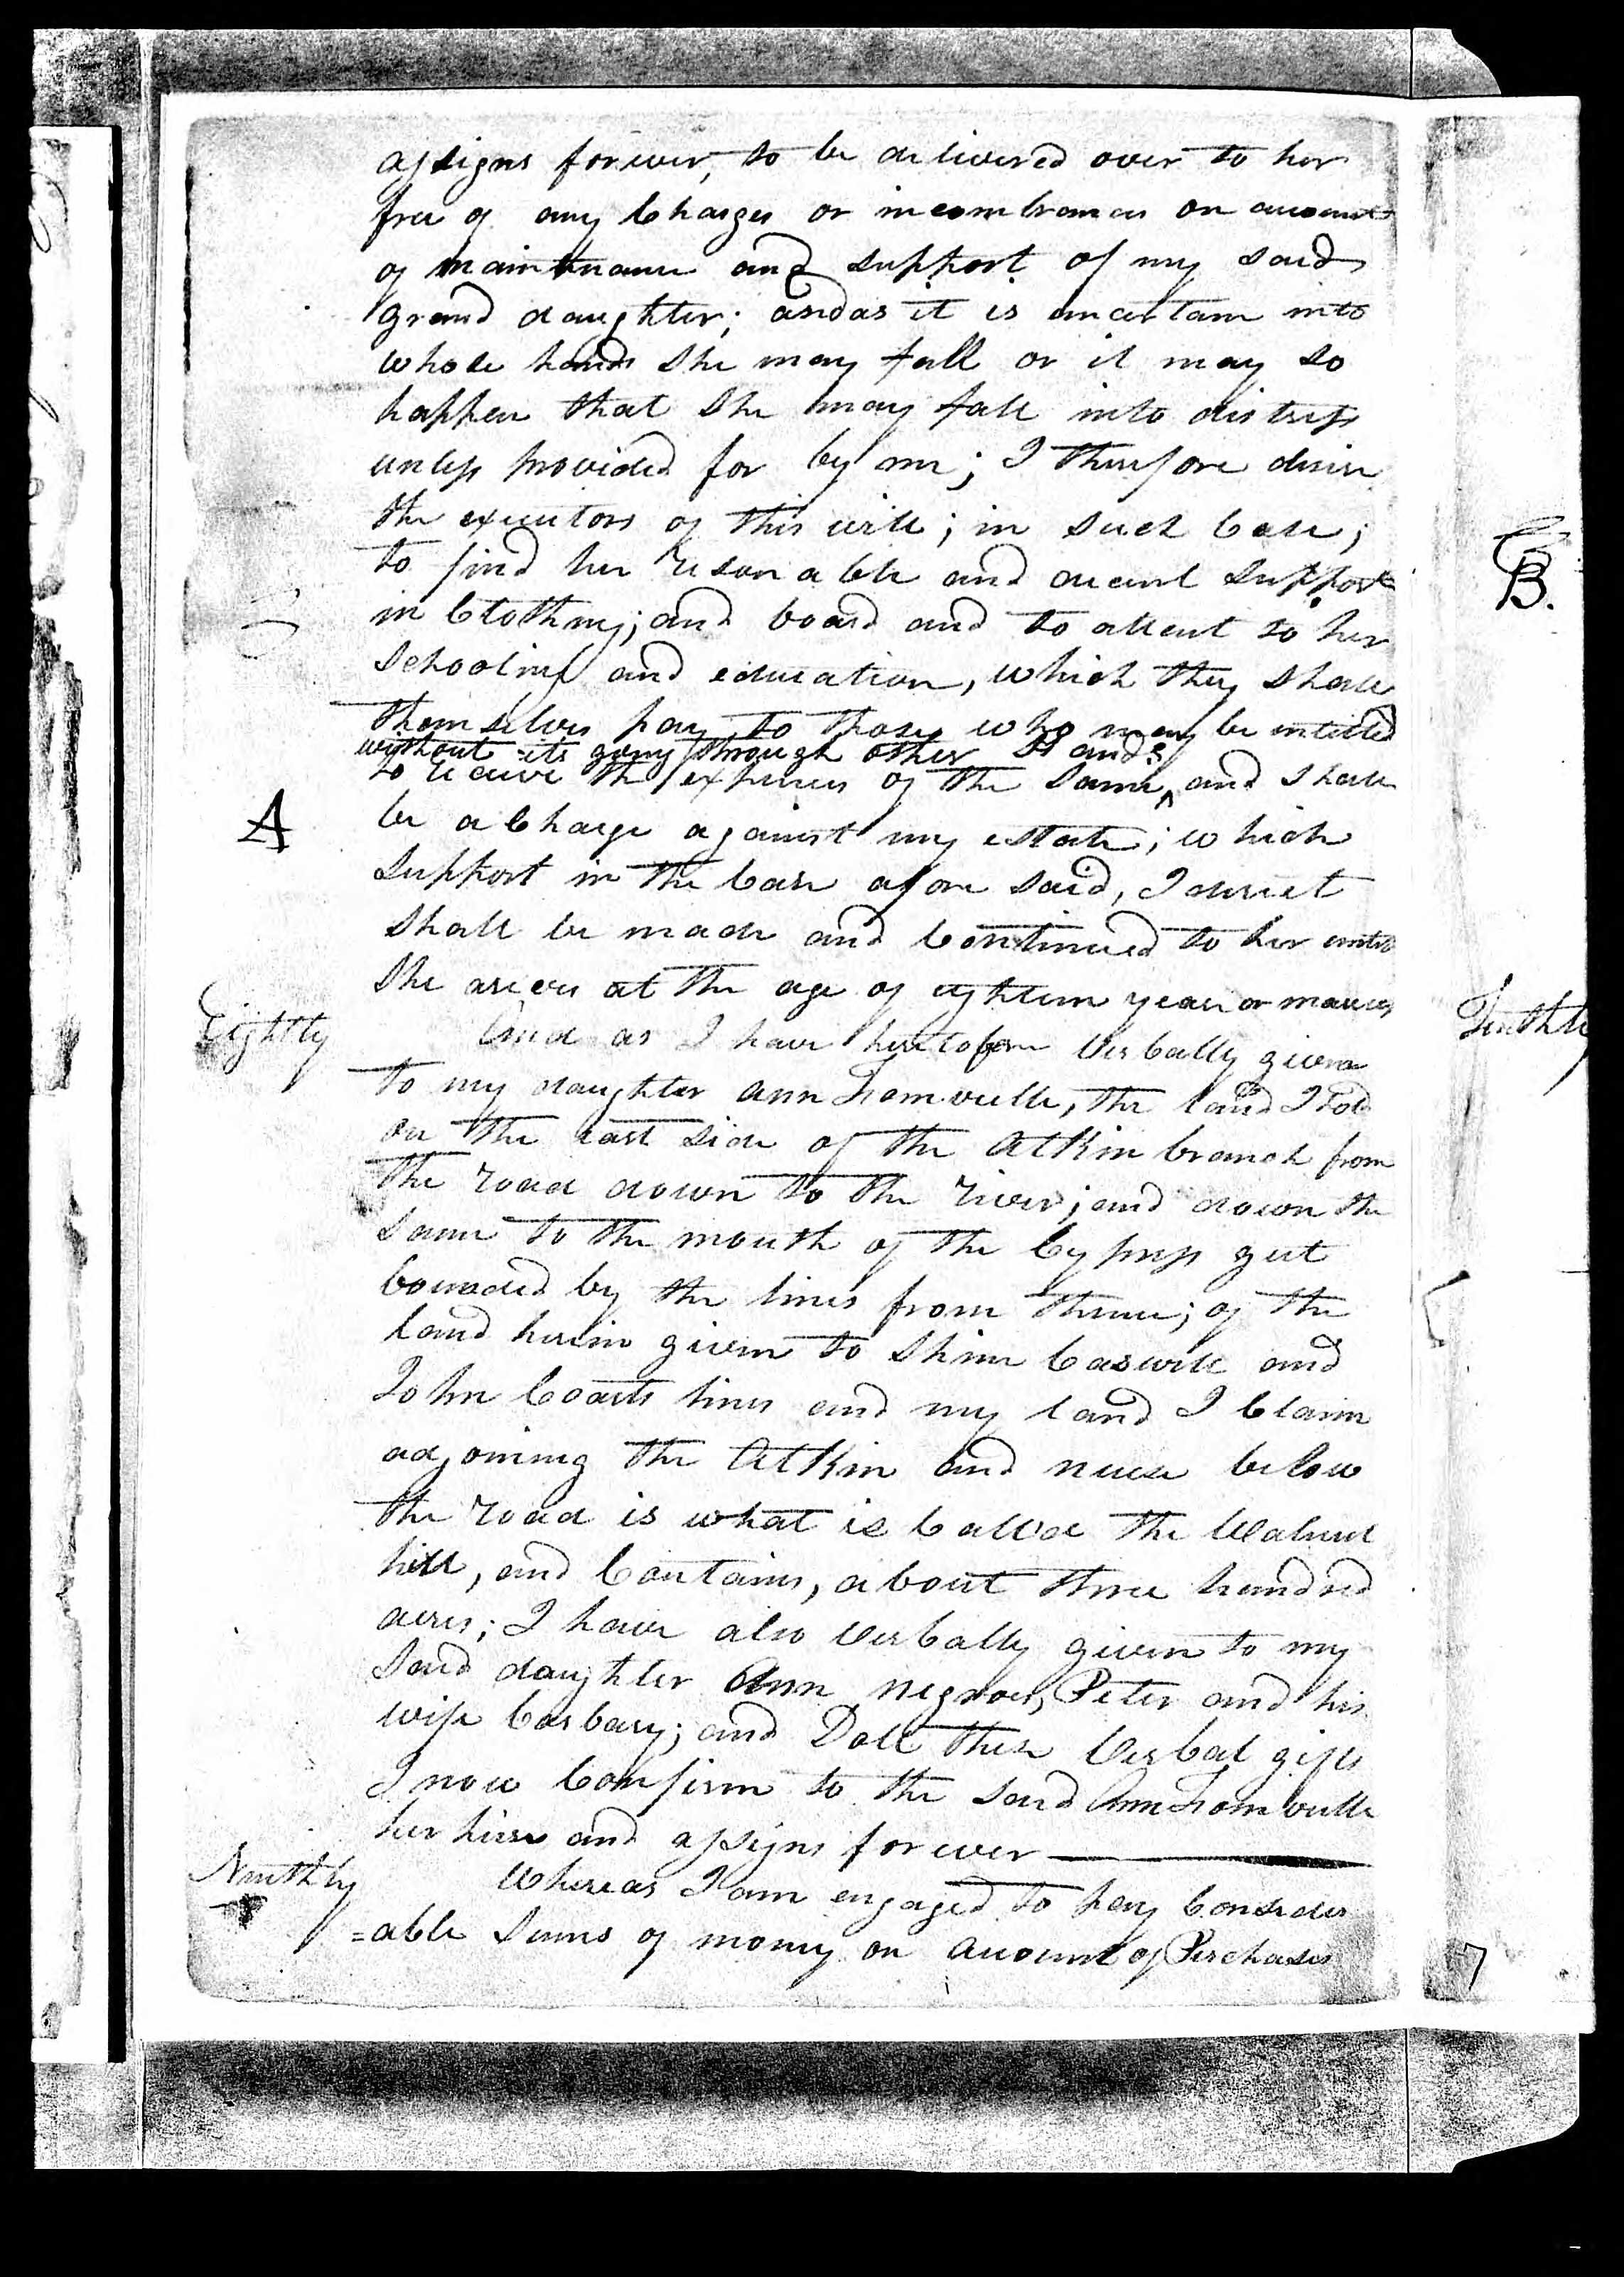 assigns forever, to be delivered over to her
free of any Charges or incombrances on account
of maintenance and support of my said
grand daughter; and as it is uncertain into
whose hands she may fall or it may so
happen that she may fall into distress
unless provided for by me; I therefore desire
the executors of this will; in such Case;
to find her resonable and decent support
in Clothing; and board and to attent to her
schooling and education, which they shall
themselves pay to those who may be intitled
without its going through other Hands
to receive the expences of the same ^ and shall
A
be a Charge against my estate; which
support in the Case afore said, I direct
shall be made and Continued to her until
she arives at the age of eighteen years or marries
Eightly
And as I have heretofore Verbally given
to my daughter Ann the land I hold
on the east side of the Atkin branch from
the road down to the river; and down the
same to the mouth of the Cypress gut
bounded by the lines from thence; of the
land herein given to Shine Caswell and
John Coarts lines and my land I Claim
adjoining the Atkin and neuse below
the road is what is Called the Walnut
hill, and Contains, about three hundred
acres; I have also Verbally given to my
said daughter Ann negroes, Peter and his
wife Barbary; and Doll these Verbal gifts
I now Confirm to the said Ann
her heirs and assigns forever
Ninthly
Whereas I am engaged to pay Consider
=able Sums of money on account of Purchases
B.
Tenthly
7